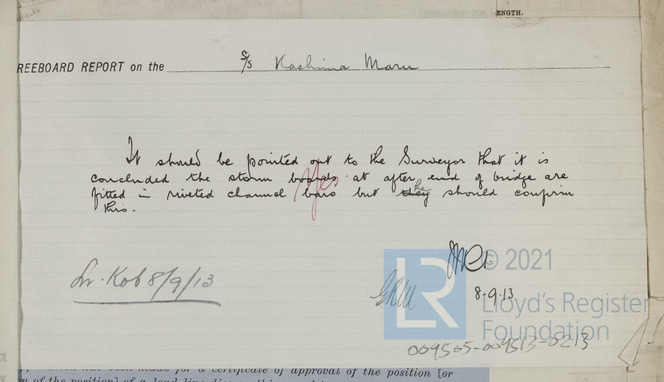 ENGTH.
REEBOARD REPORT on the S/S Kashima Maru
It should be pointed out to the Surveyor that it is
concluded the storm boards at after end of bridge are
fitted in riveted channel bars but he should confirm
this.
Yes.
Lr. Kob 8/9/13
8.9.13
LR
© 2021
Lloyd's Register
Foundation
009505-009513-0213
for a certificate of approval of the position [or